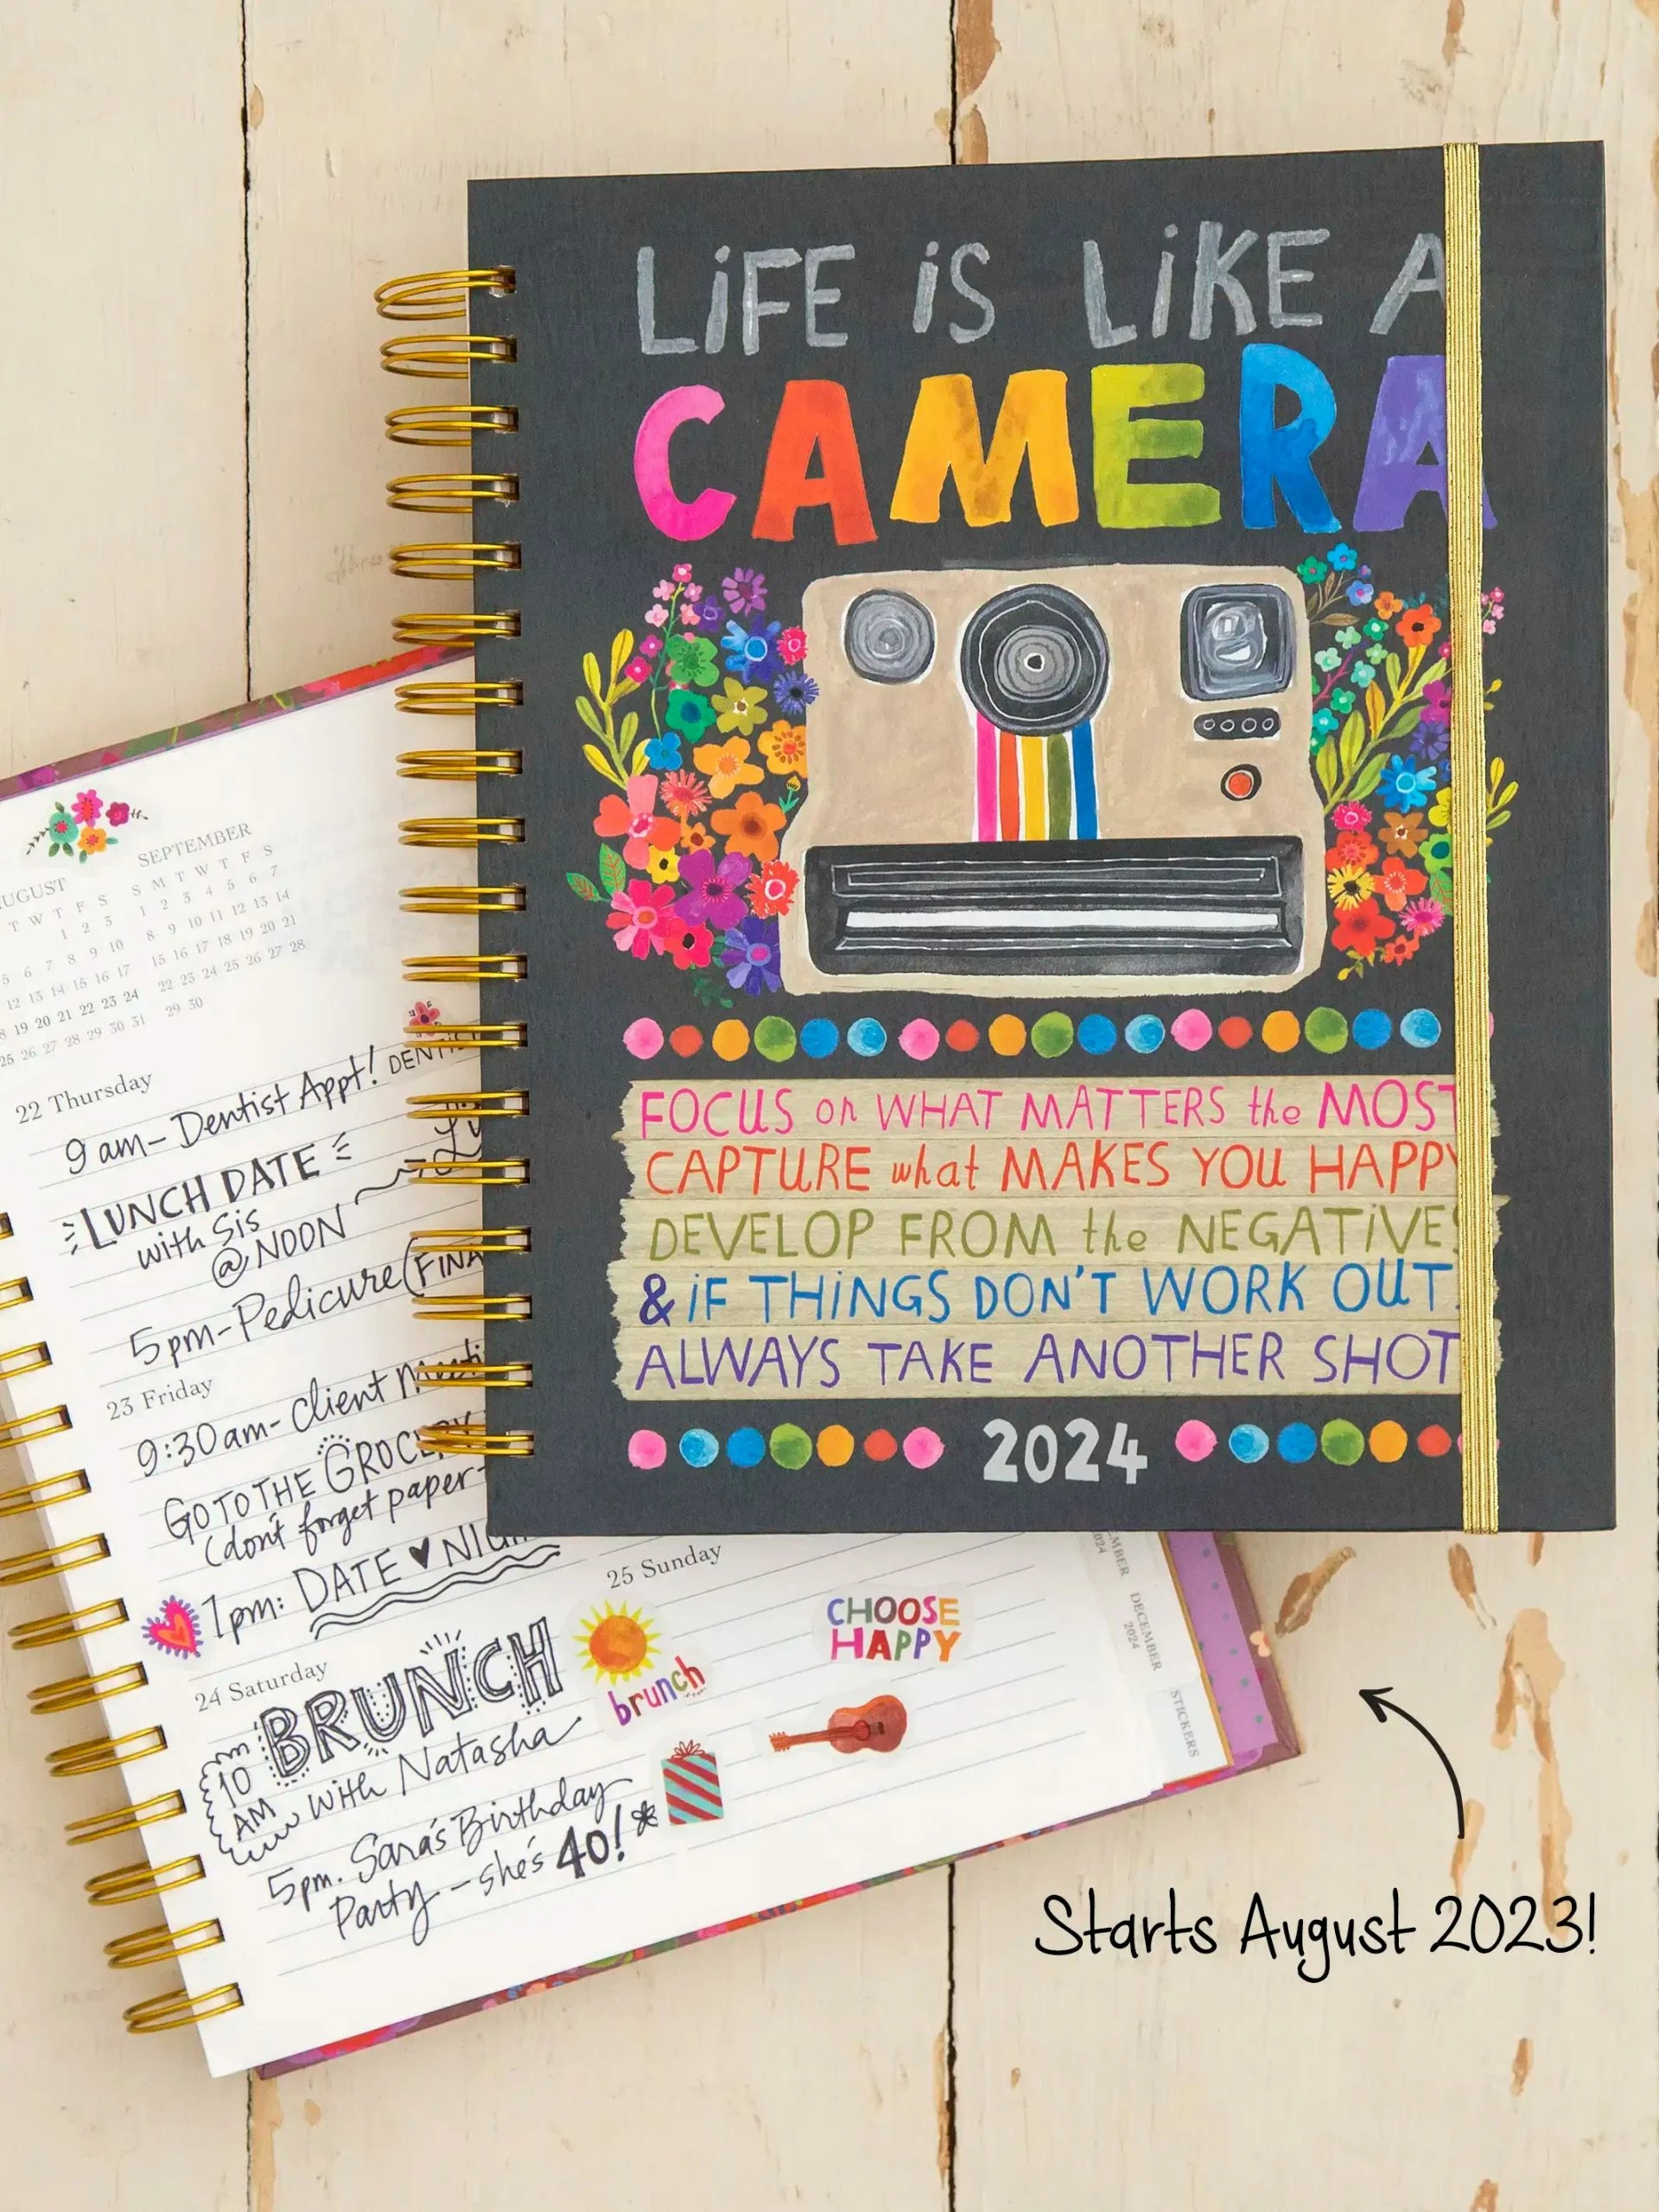 LiFE iS LiKE A
CAMERA
FOCUS on WHAT MATTERS the MOST
CAPTURE what MAKES YOU HAPPY
DEVELOP FROM the NEGATiVES
& iF THiNGS DON'T WORK OUT
ALWAYS TAKE ANOTHER SHOT
2024
SEPTEMBER
S M T W T F S
1 2 3 4 5 6 7
8 9 10 11 12 13 14
15 16 17 18 19 20 21
22 23 24 25 26 27 28
29 30
UGUST
T W T F S
1 2 3
5 6 7 8 9 10
12 13 14 15 16 17
19 20 21 22 23 24
25 26 27 28 29 30 31
22 Thursday
9 am - Dentist Appt! DENTIS
LUNCH DATE
with Sis
@ NOON
5pm - Pedicure (FINA
23 Friday
9:30am - Client
GO TO THE GROCERY
(don't forget paper -
7pm: DATE ♥
24 Saturday
10 AM
BRUNCH
with Natasha
5pm. Sara's Birthday
Party - she's 40! *
25 Sunday
brunch
CHOOSE
HAPPY
2024
DECEMBER
2024
STICKERS
Starts August 2023!